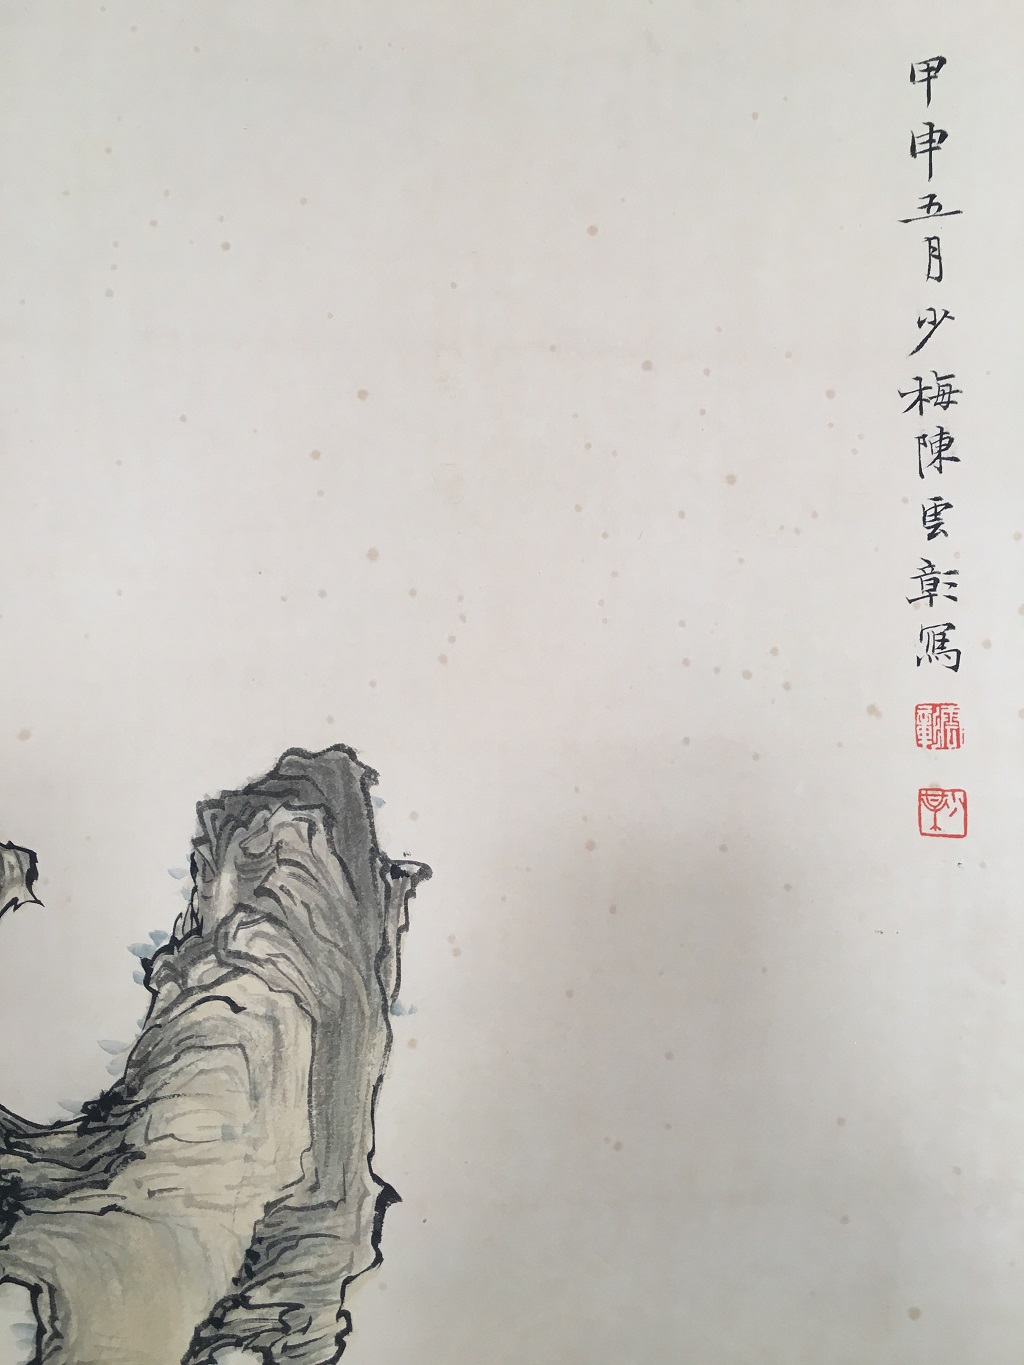 甲申五月少梅陳雲彰寫